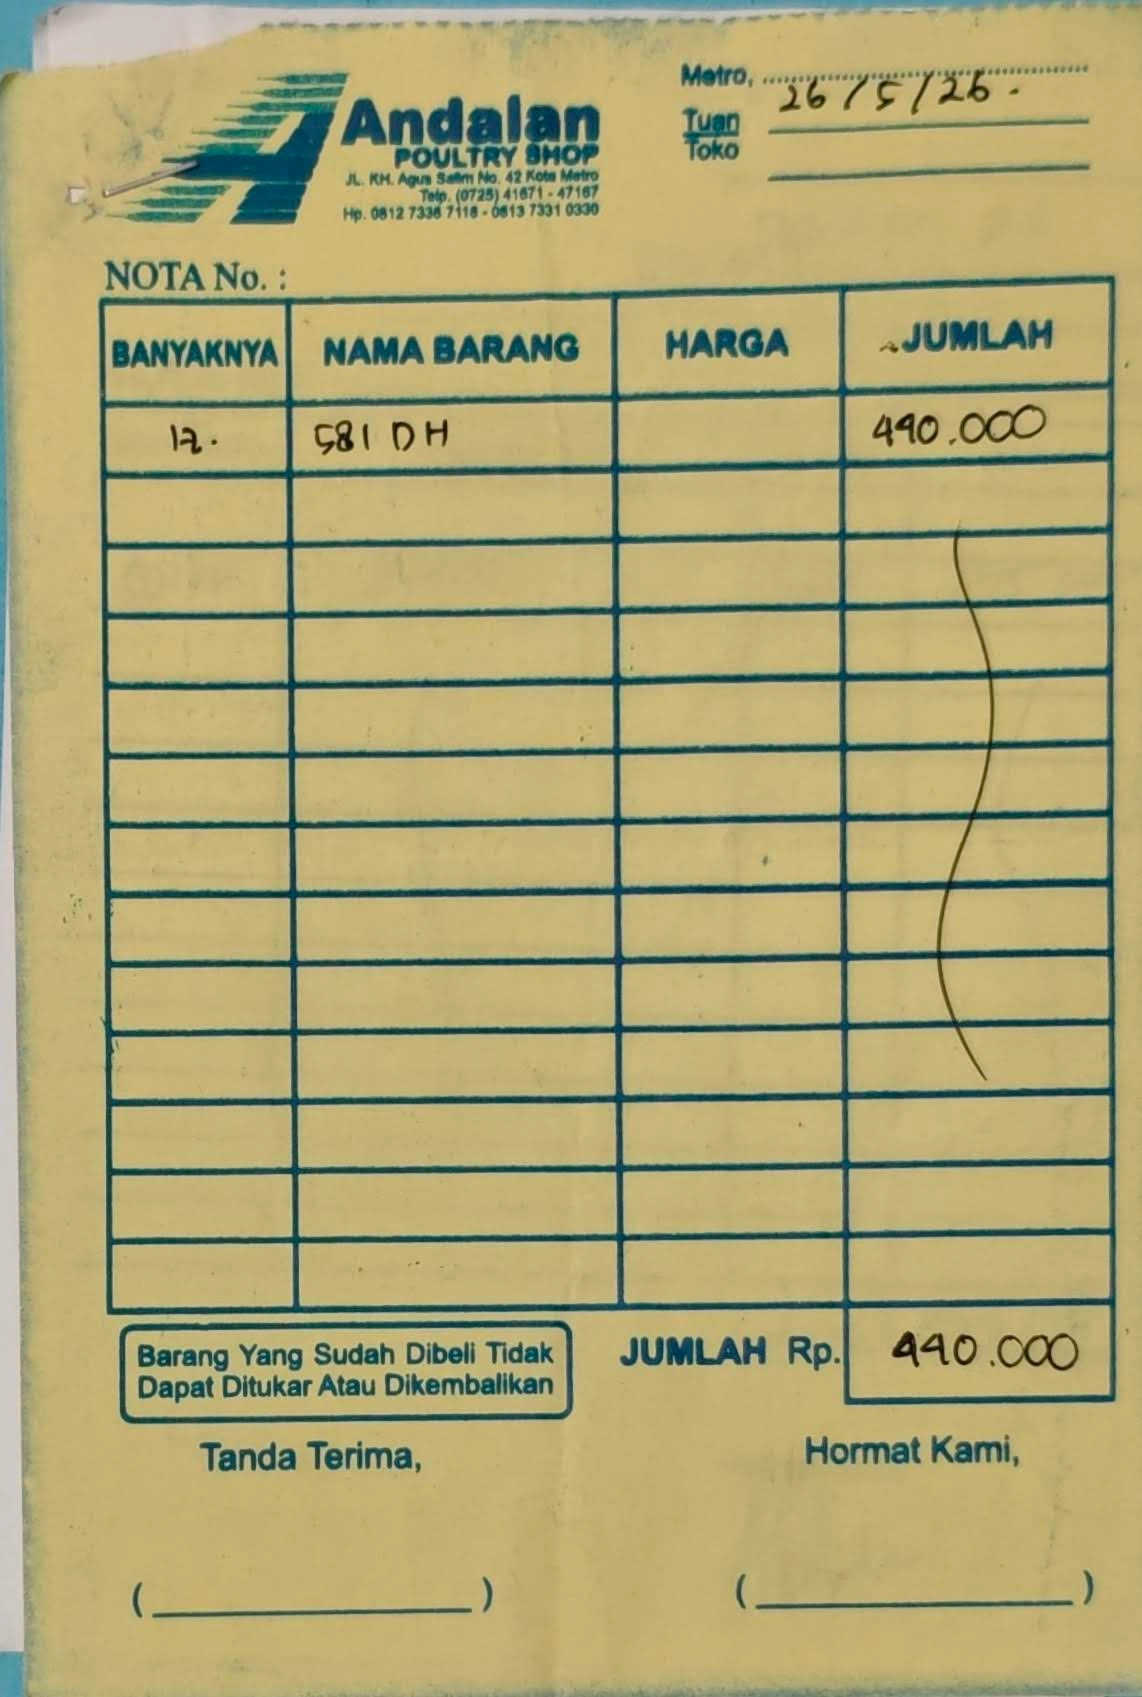 Andalan
POULTRY SHOP
JL. KH. Agus Salim No. 42 Kota Metro
Telp. (0725) 41671 - 47167
Hp. 0812 7336 7118 - 0813 7331 0330
Metro, 26/5/26.
Tuan
Toko
NOTA No. :
BANYAKNYA NAMA BARANG HARGA JUMLAH
12. 581 DH 490.000
JUMLAH Rp. 490.000
Barang Yang Sudah Dibeli Tidak
Dapat Ditukar Atau Dikembalikan
Tanda Terima, Hormat Kami,
(____________) (____________)